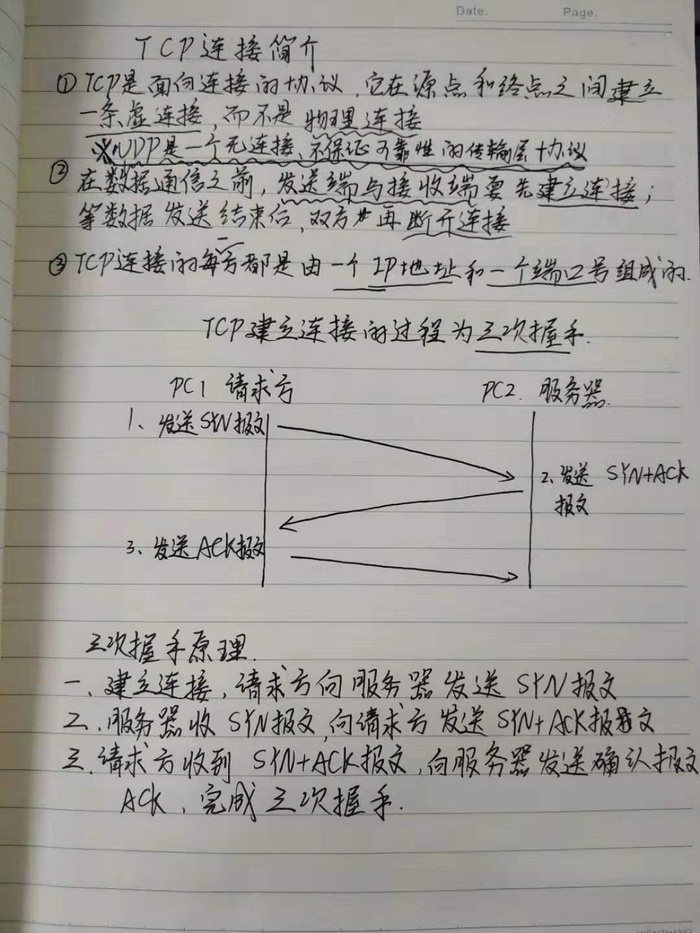 Date. Page.
TCP连接简介
① TCP是面向连接的协议，它在源点和终点之间建立
一条虚连接，而不是物理连接
※UDP是一个无连接、不保证可靠性的传输层协议
② 在数据通信之前，发送端与接收端要先建立连接；
等数据发送结束后，双方再断开连接
③ TCP连接的每一方都是由一个IP地址和一个端口号组成的.
TCP建立连接的过程为三次握手.
PC1 请求方 PC2. 服务器
1、发送SYN报文
2、发送 SYN+ACK
报文
3、发送ACK报文
三次握手原理.
一、建立连接，请求方向服务器发送SYN报文
二、服务器收SYN报文，向请求方发送SYN+ACK报文
三、请求方收到SYN+ACK报文，向服务器发送确认报文
ACK，完成三次握手.